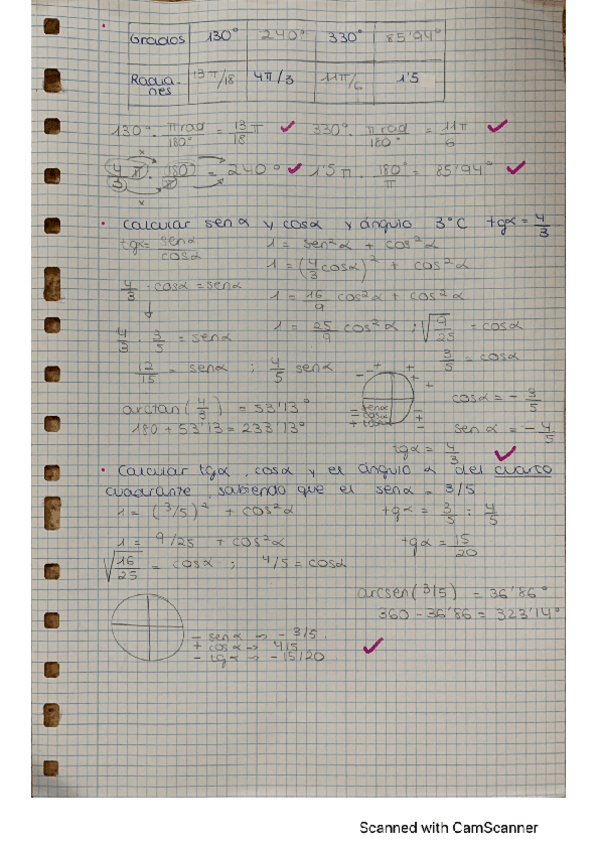 Grados 130° 240° 330° 85'94°
Radianes 13π/18 4π/3 11π/6 1'5
130° · πrad/180° = 13π/18 ✓ 330° · πrad/180° = 11π/6 ✓
4π/3 · 180°/π = 240° ✓ 1'5π · 180°/π = 85'94° ✓
• Calcular senα y cosα y ángulo 3°C tgα = 4/3
tgα = senα/cosα 1 = sen²α + cos²α
1 = (4/3 cosα)² + cos²α
4/3 · cosα = senα 1 = 16/9 cos²α + cos²α
4/3 · 3/5 = senα 1 = 25/9 cos²α ; √9/25 = cosα
12/15 = senα ; 4/5 senα 3/5 = cosα
arctan(4/3) = 53'13° cosα = - 3/5
180 + 53'13 = 233'13° senα = - 4/5
tgα = 4/3 ✓
- senα
- cosα
+ tanα
• Calcular tgα, cosα y el ángulo α del cuarto
cuadrante, sabiendo que el senα = 3/5
1 = (3/5)² + cos²α tgα = 3/5 : 4/5
1 = 9/25 + cos²α tgα = 15/20
√16/25 = cosα ; 4/5 = cosα
arcsen(3/5) = 36'86°
360 - 36'86 = 323'14°
- senα → - 3/5
+ cosα → 4/5
- tgα → - 15/20 ✓
Scanned with CamScanner